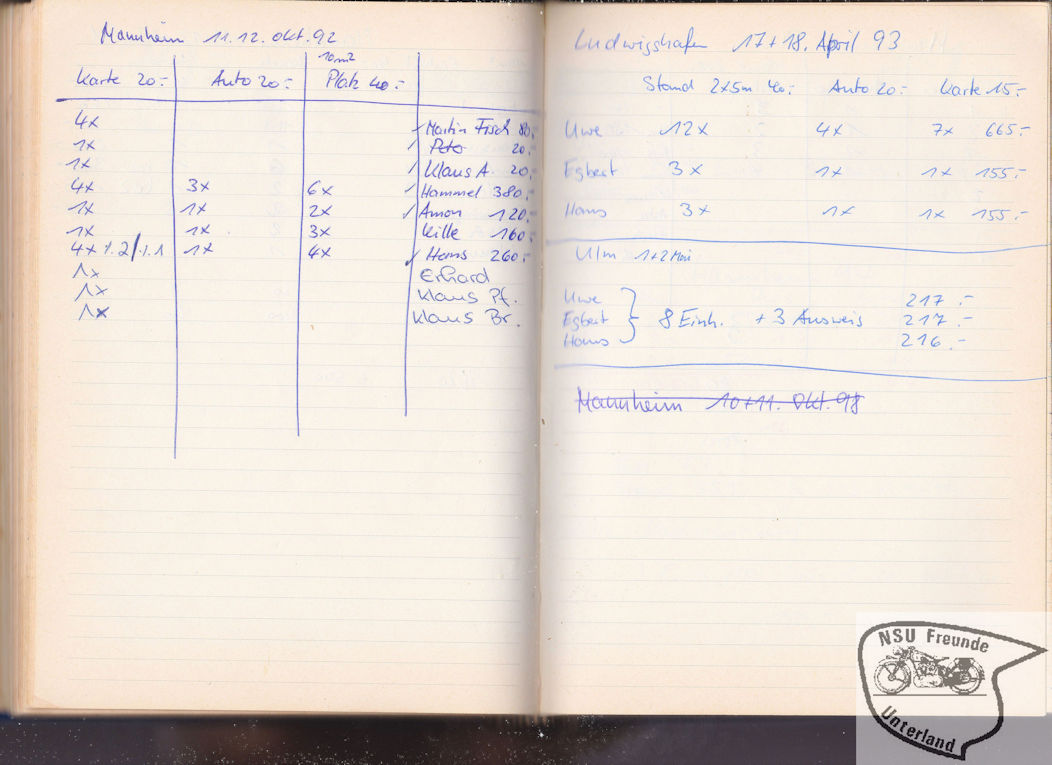 Mannheim 11.12. Okt. 92
10m²
Karte 20:- Auto 20:- Platz 40:-
4x Martin Fisch 80:-
1x Peto 20:-
1x Klaus A. 20:-
4x 3x 6x Hammel 380:-
1x 1x 2x Amon 120:-
1x 1x 3x Kille 160:-
4x 1x 4x Hans 260:-
1x Erhard
1x Klaus Pf.
1x Klaus Br.
Ludwigshafen 17+18. April 93
Stand 2x5m 40:- Auto 20:- Karte 15:-
Uwe 12x 4x 7x 665:-
Egbert 3x 1x 1x 155:-
Hans 3x 1x 1x 155:-
Ulm 1+2 Mai
Uwe 217.-
Egbert 8 Einh. + 3 Ausweis 217.-
Hans 216.-
Mannheim 10+11. Okt. 98
NSU Freunde
Unterland